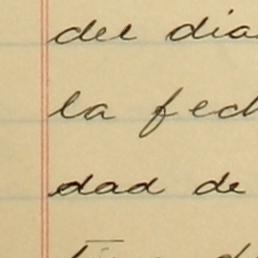 del dia
la fech
dad de